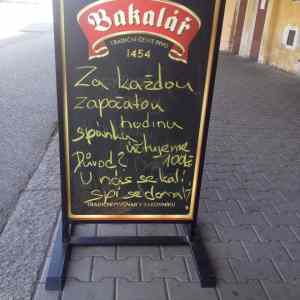 Bakalář
TRADIČNÍ ČESKÉ PIVO
1454
Za každou
započatou
hodinu
spánku účtujeme
Důvod? 100Kč
U nás se kalí
spí se doma!
TRADIČNÍ PIVOVAR V RAKOVNÍKU